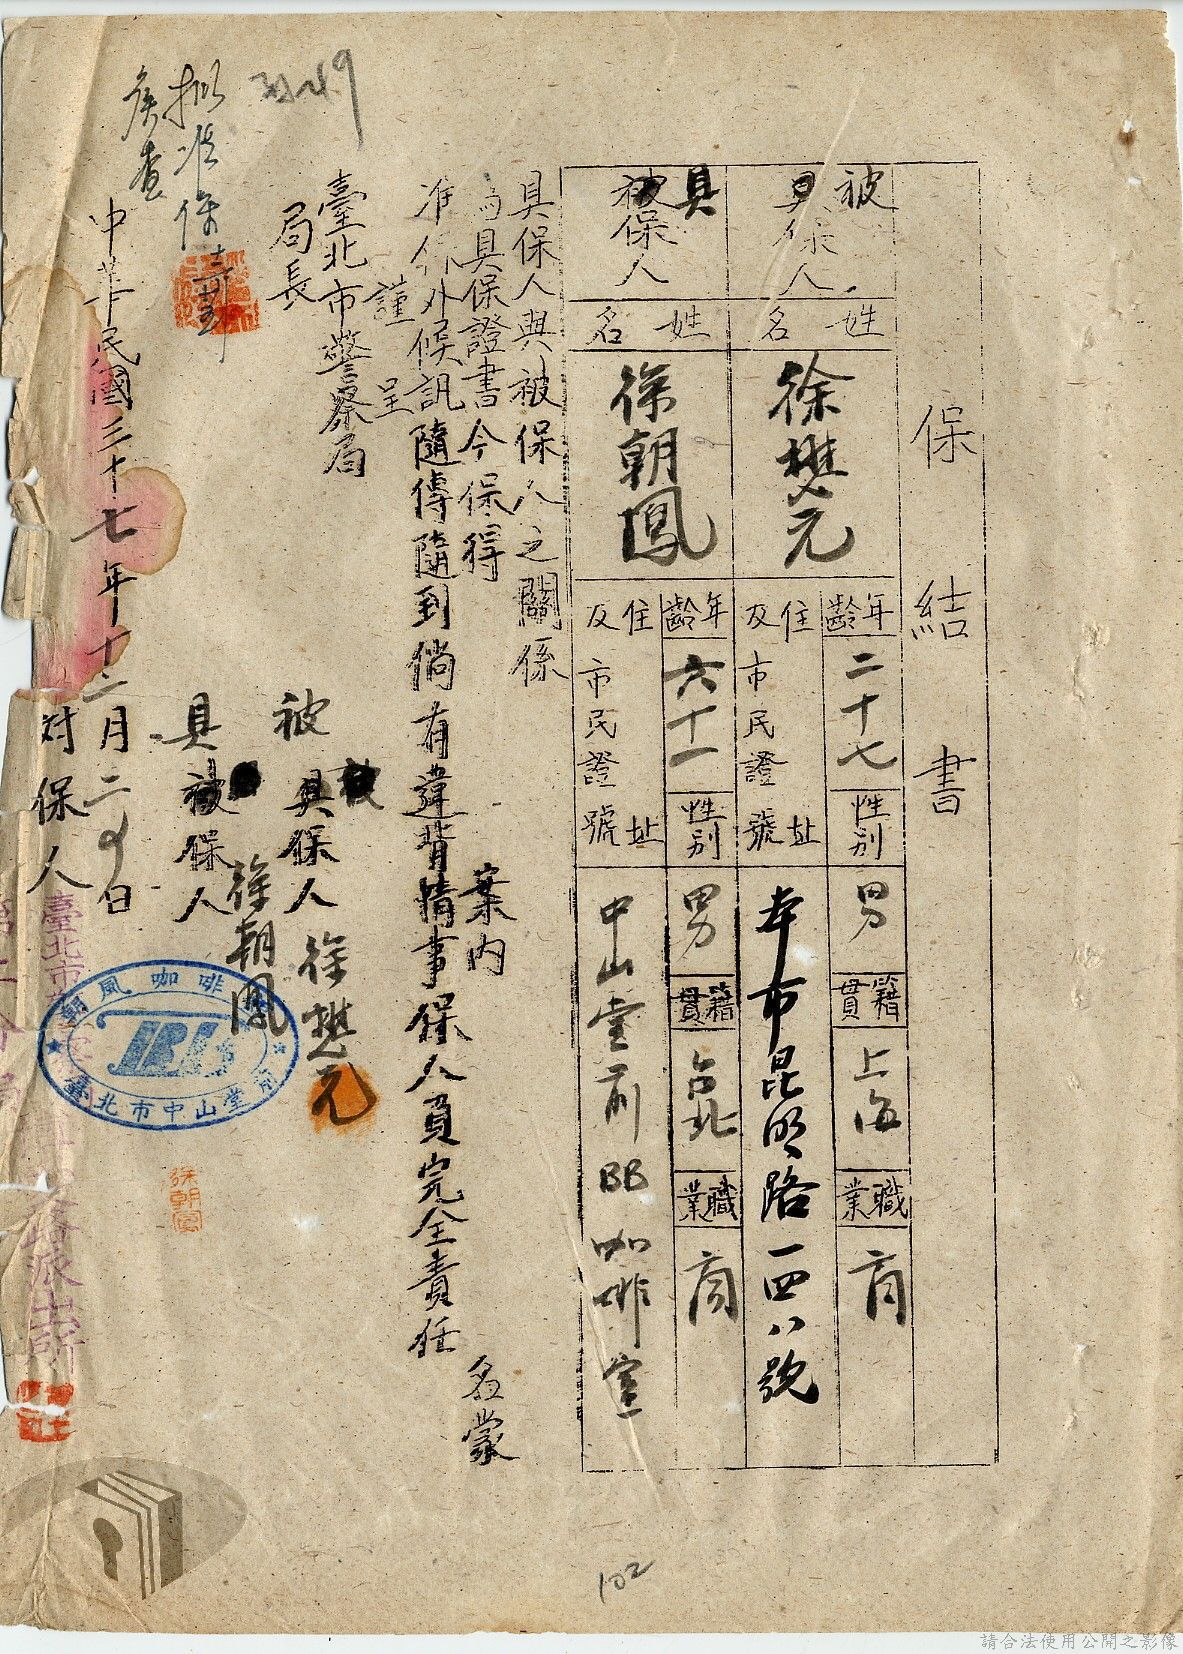 保結書
被具保人
姓名
徐懋元
年齡
二十七
性別
男
籍貫
上海
職業
商
住址及市民證號
本市昆明路一四八號
具被保人
姓名
徐朝鳳
年齡
六十一
性別
男
籍貫
台北
職業
商
住址及市民證號
中山堂前BB咖啡室
具保人與被保人之關係
為具保證書今保得
案內
名蒙
准保外候訊隨傳隨到倘有違背情事保人負完全責任
謹呈
臺北市警察局
局長
被具保人 徐懋元
具被保人 徐朝鳳
中華民國三十七年十二月二 日
對保人
擬准保
候查
朝風咖啡
臺北市中山堂前
臺北市
路派出所
102
請合法使用公開之影像